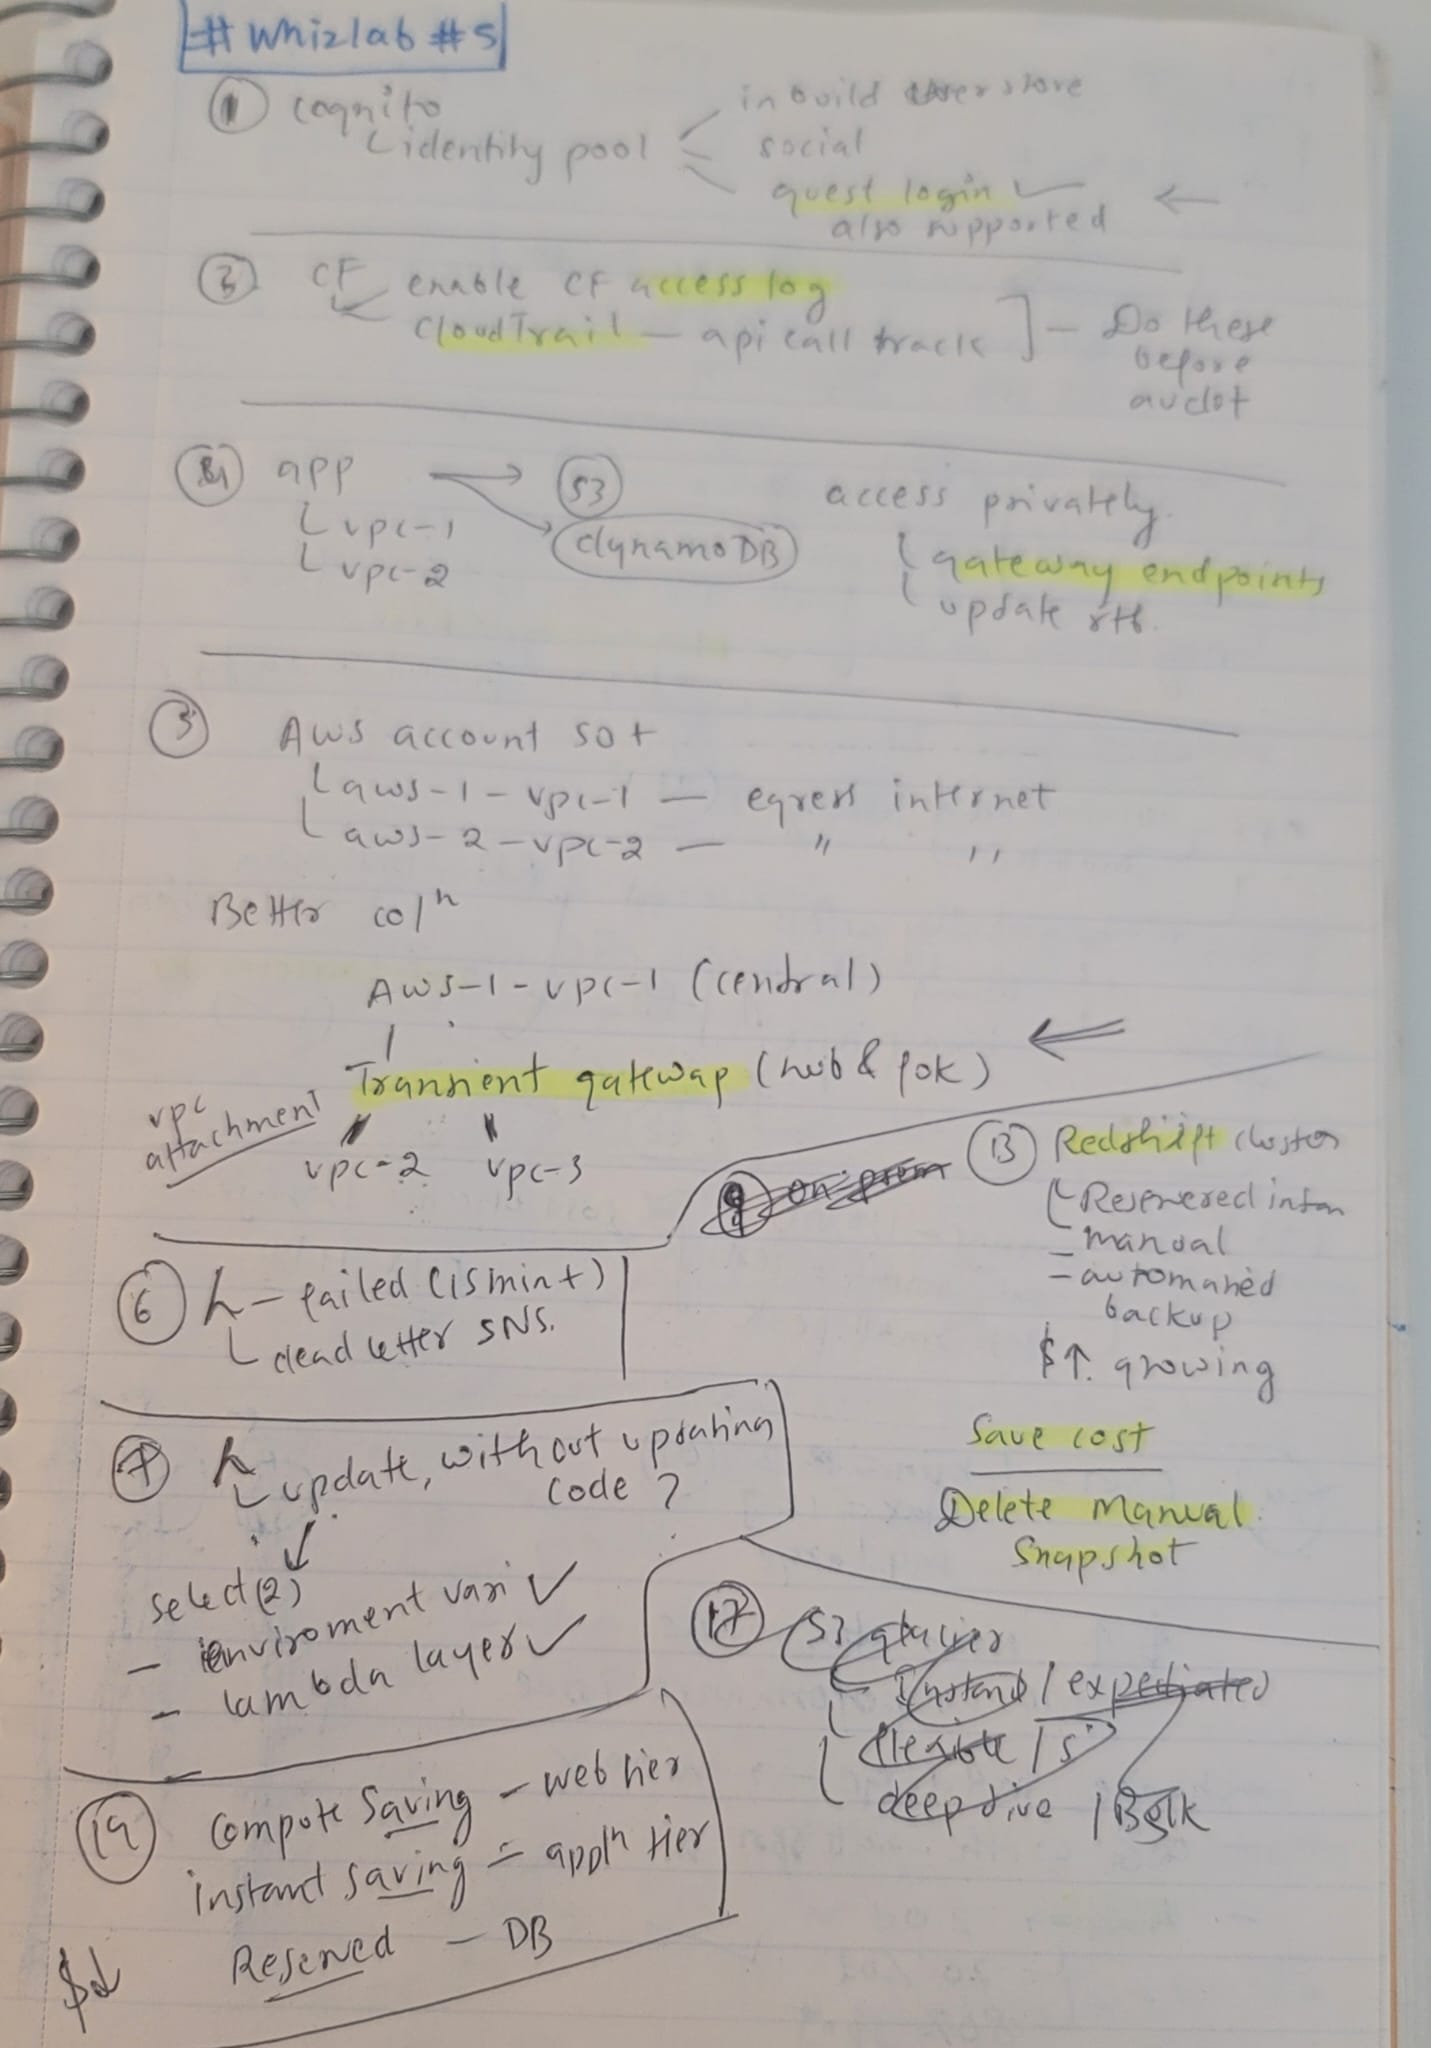 # Whizlab #5
① cognito
└ identity pool
inbuild user store
social
guest login ✓ ←
also supported
③ CF enable CF access log
CloudTrail — api call track ] — Do these
before
audot
app → S3
└ vpc-1
└ vpc-2
dynamoDB
access privately
└ gateway endpoints
└ update rtb.
⑤ AWS account 50 +
└ aws-1 - vpc-1 — egress internet
└ aws-2 - vpc-2 — " "
Better solⁿ
AWS-1 - vpc-1 (central)
Transient gateway (hub & pok) ⇐
vpc
attachment
vpc-2 vpc-3
⑨ on prem
⑬ Redshift cluster
└ Reservered instan
- manual
- automated
backup
$↑. growing
Save cost
Delete Manual
Snapshot
⑥ λ - failed (15 min +)
└ dead letter SNS.
⑦ λ
└ update, without updating
code ?
select (2)
- enviroment vari ✓
- lambda layer ✓
⑰ S3 glacier
Instant / expediated
flexible / s
deep dive / Bulk
⑲ compute Saving - web tier
instant saving = applⁿ tier
Reserved - DB
$↓